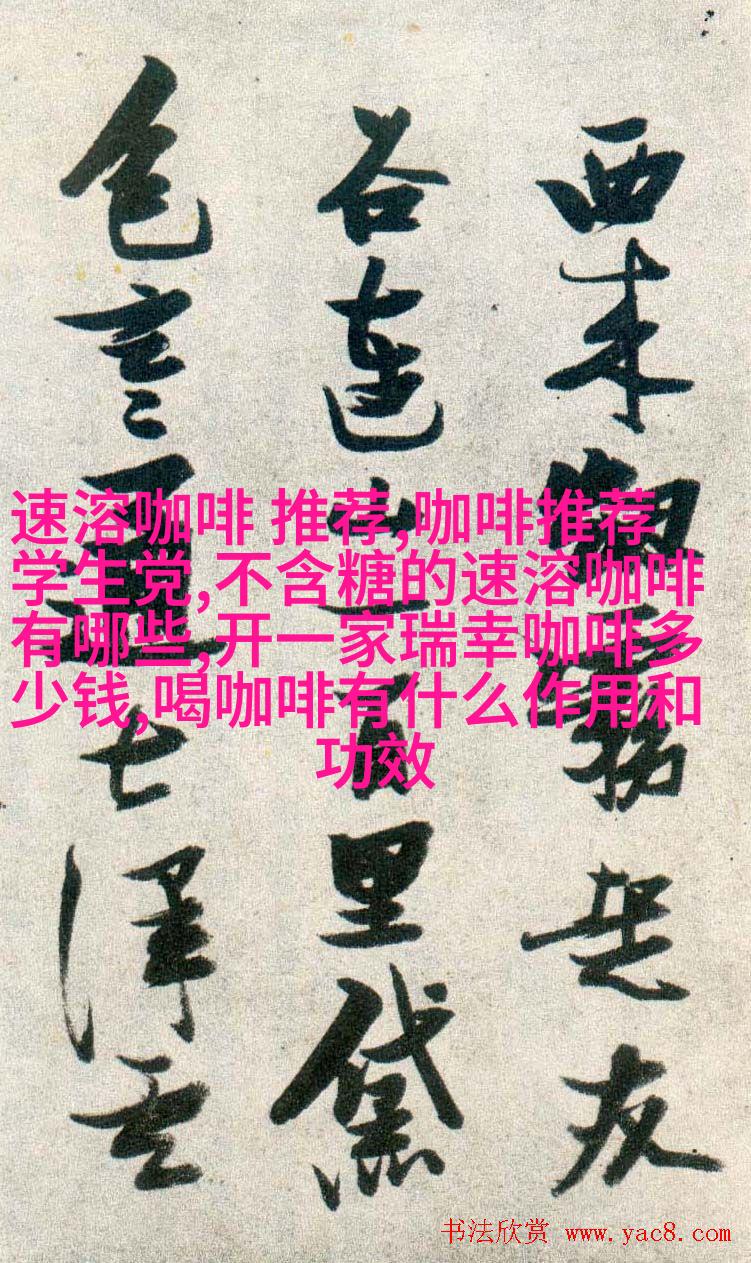 西来
友
谷連山百里黛
色言通七澤
速溶咖啡 推荐,咖啡推荐
学生党,不含糖的速溶咖啡
有哪些,开一家瑞幸咖啡多
少钱,喝咖啡有什么作用和
功效
书法欣赏 www.yac8.com